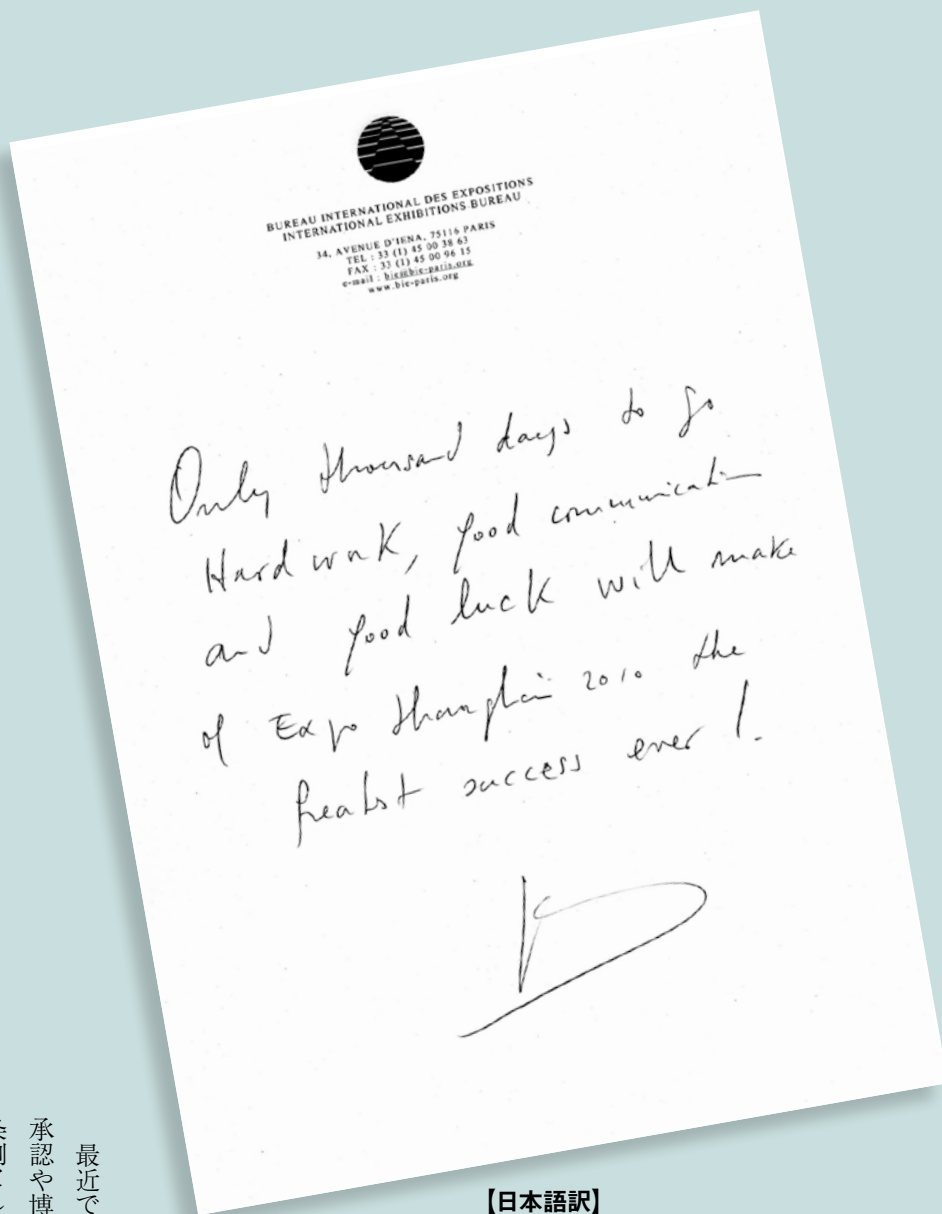 BUREAU INTERNATIONAL DES EXPOSITIONS
INTERNATIONAL EXHIBITIONS BUREAU
34, AVENUE D'IENA, 75116 PARIS
TEL : 33 (1) 45 00 38 63
FAX : 33 (1) 45 00 96 15
e-mail : bie@bie-paris.org
www.bie-paris.org
Only thousand days to go
Hard work, good communication
and good luck will make
of Expo Shanghai 2010 the
greatest success ever !
【日本語訳】
最近で
承認や博